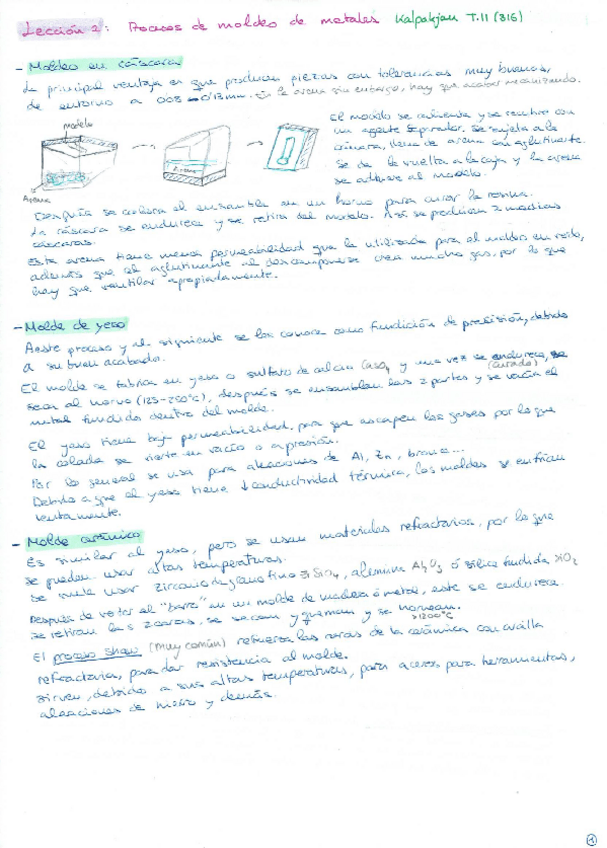 Lección 2: Procesos de moldeo de metales Kalpakjan T.11 (316)
- Moldeo en cáscara
La principal ventaja es que producen piezas con tolerancias muy buenas,
de entorno a 0'08 - 0'13 mm. la arena sin embargo, hay que acabar mecanizando.
El modelo se calienta y se recubre con
un agente separador. Se sujeta a la
cámara, llena de arena con aglutinante.
Se da la vuelta a la caja y la arena
se adhiere al modelo.
modelo
Arena
Después se coloca el ensamble en un horno para curar la resina.
La cáscara se endurece y se retira del modelo. Así se producen 2 medias
cáscaras.
Esta arena tiene menos permeabilidad que la utilizada para el moldeo en verde,
además que el aglutinante al descomponerse crea mucho gas, por lo que
hay que ventilar apropiadamente.
- Molde de yeso
A este proceso y al siguiente se los conoce como fundición de precisión, debido
a su buen acabado.
El molde se fabrica en yeso o sulfato de calcio CaSO4 y una vez se endurece, se
(curado)
seca al horno (125-250ºC), después se ensamblan las 2 partes y se vacía el
metal fundido dentro del molde.
El yeso tiene baja permeabilidad, para que escapen los gases por lo que
la colada se vierte en vacío o a presión.
Por lo general se usa para aleaciones de Al, Zn, bronce...
Debido a que el yeso tiene ↓conductividad térmica, los moldes se enfrían
lentamente.
- Molde cerámico
Es similar al yeso, pero se usan materiales refractarios, por lo que
se pueden usar altas temperaturas.
Se suele usar zirconio de grano fino ZrSiO4, alumina Al2O3 ó sílice fundida SiO2
Después de verter el "barro" en un molde de madera ó metal, este se endurece.
Se retiran las 2 caras, se secan y queman y se hornean.
>1200ºC
El proceso shaw (muy común) refuerza las caras de la cerámica con arcilla
refractaria, para dar resistencia al molde.
Sirven, debido a sus altas temperaturas, para aceros para herramientas,
aleaciones de hierro y demás.
1